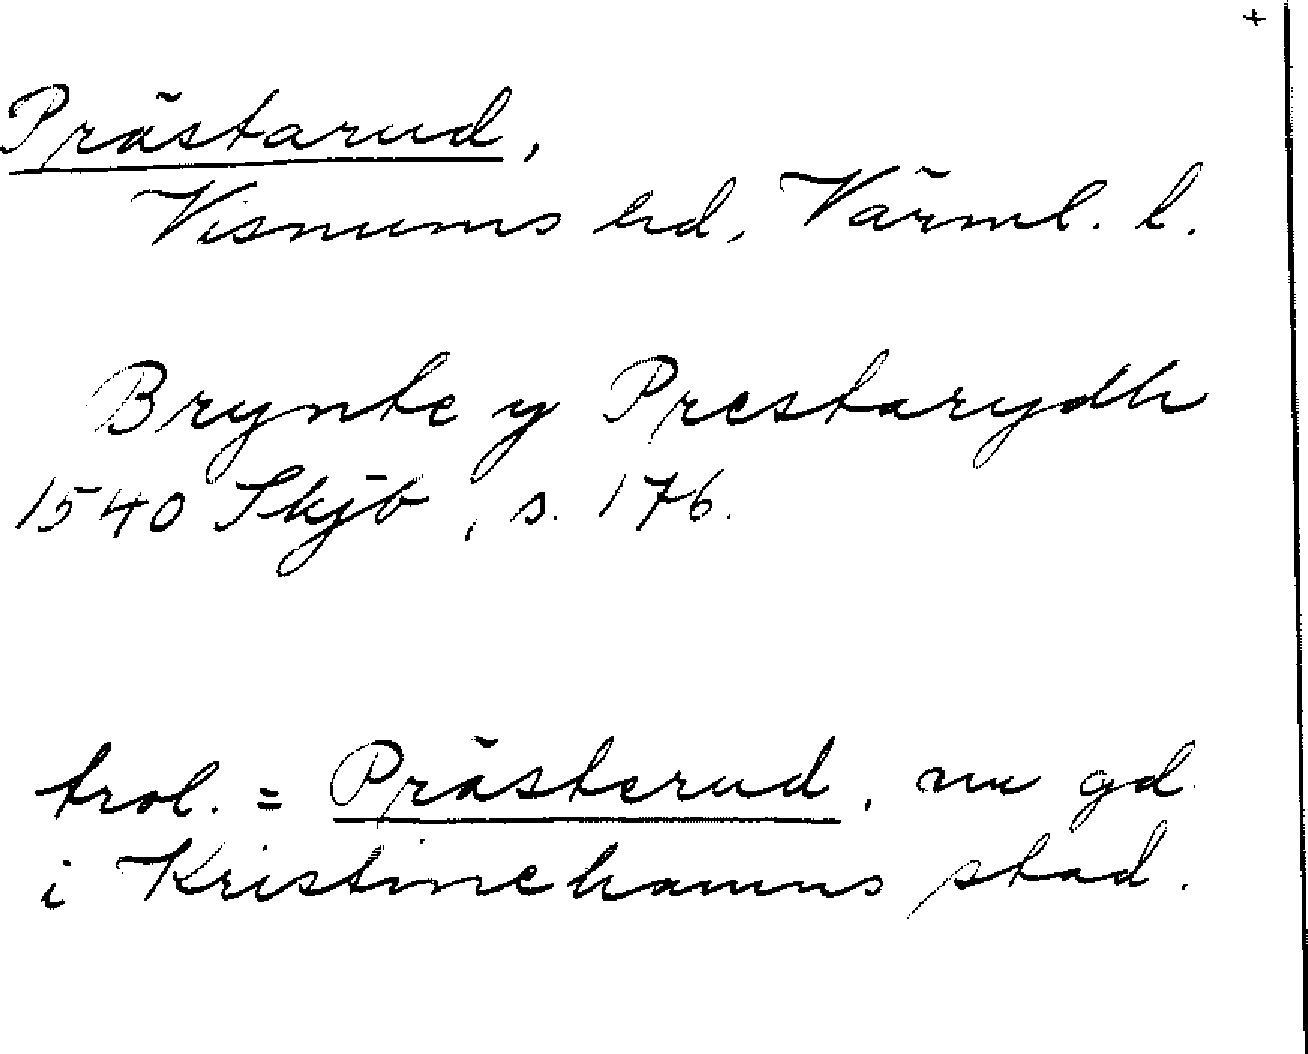 +
Prästarud,
Visnums hd, Värml. l.
Brynte y Prestarydh
1540 Skjb, s. 176.
trol. = Prästerud, nu gd.
i Kristinehamns stad.